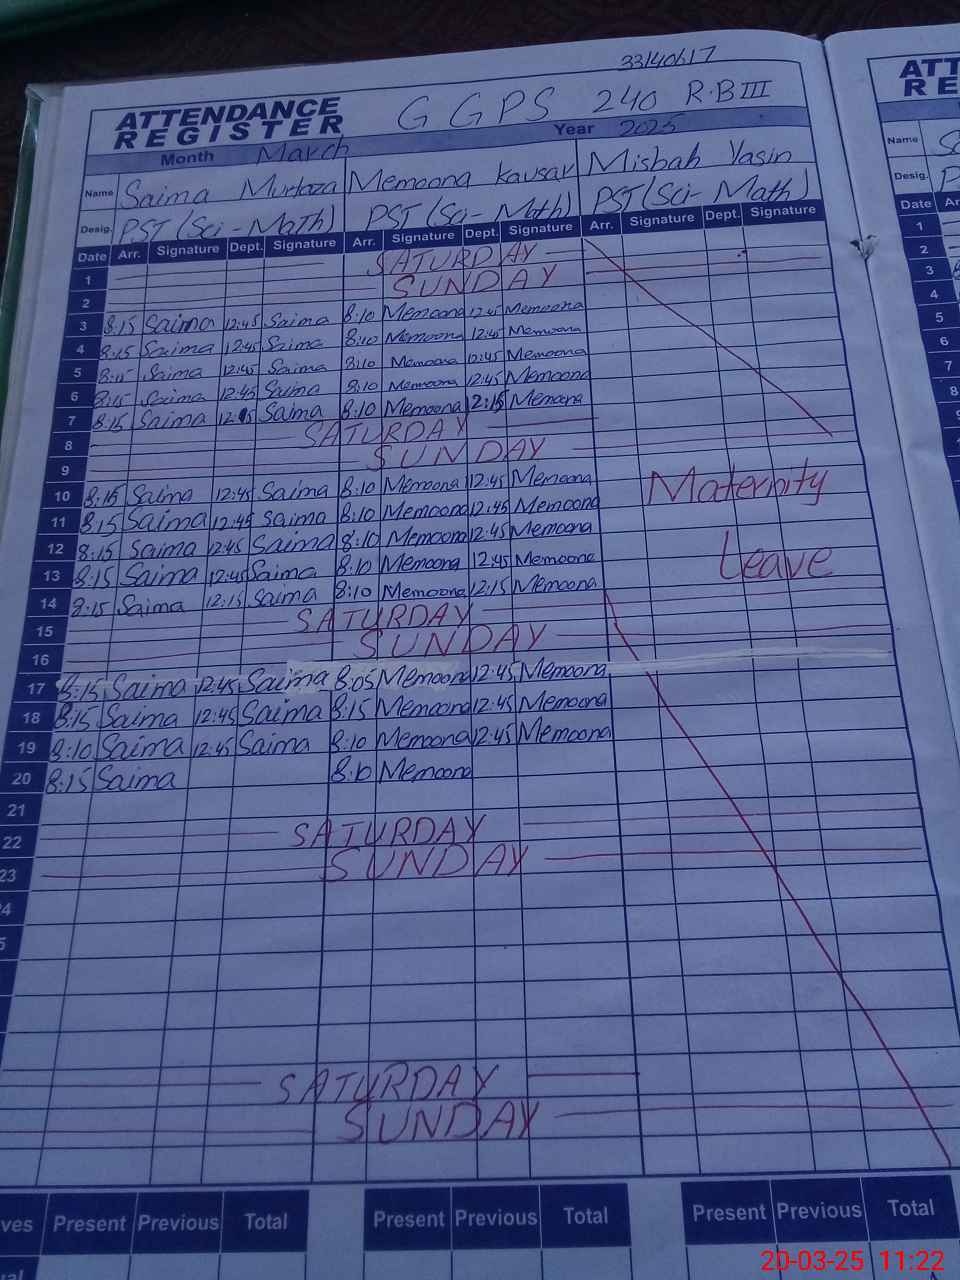 33140617
ATTENDANCE REGISTER G GPS 240 R.B III
Month March Year 2025
Name Saima Murtaza Memoona Kausar Misbah Yasin
Desig. PST (Sci-Math) PST (Sci-Math) PST (Sci-Math)
Date Arr. Signature Dept. Signature Arr. Signature Dept. Signature Arr. Signature Dept. Signature
1 SATURDAY
2 SUNDAY
3 8:15 Saima 12:45 Saima 8:10 Memoona 12:45 Memoona
4 8:15 Saima 12:45 Saima 8:10 Memoona 12:45 Memoona
5 8:15 Saima 12:45 Saima 8:10 Memoona 12:45 Memoona
6 8:15 Saima 12:45 Saima 8:10 Memoona 12:45 Memoona
7 8:15 Saima Saima 8:10 Memoona 12:15 Memoona
8 SATURDAY
9 SUNDAY
10 8:15 Saima 12:45 Saima 8:10 Memoona 12:45 Memoona Maternity
11 8:15 Saima 12:45 Saima 8:10 Memoona 12:45 Memoona
12 8:15 Saima 12:45 Saima 8:10 Memoona 12:45 Memoona
13 8:15 Saima 12:45 Saima 8:10 Memoona 12:45 Memoona Leave
14 8:15 Saima 12:15 Saima 8:10 Memoona 12:15 Memoona
15 SATURDAY
16 SUNDAY
17 8:15 Saima 12:45 Saima 8:05 Memoona 12:45 Memoona
18 8:15 Saima 12:45 Saima 8:15 Memoona 12:45 Memoona
19 8:10 Saima 12:45 Saima 8:10 Memoona 12:45 Memoona
20 8:15 Saima 8:10 Memoona
21
22 SATURDAY
23 SUNDAY
4
5
SATURDAY
SUNDAY
ves Present Previous Total Present Previous Total Present Previous Total
ual
ATT
RE
Name Sa
Desig. P
Date Ar
1
2
3
4
5
6
7
8
9
20-03-25 11:22